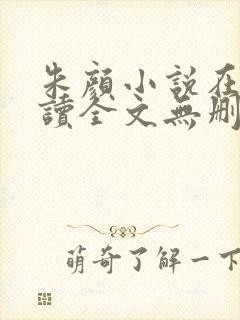 朱顔小説在
讀全文無刪
萌奇了解一下